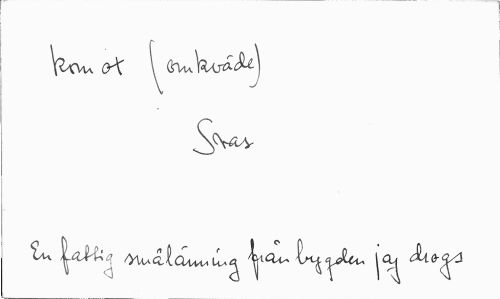 kom ot (omkväde)
Svas
En fattig smålänning från bygden jag drogs